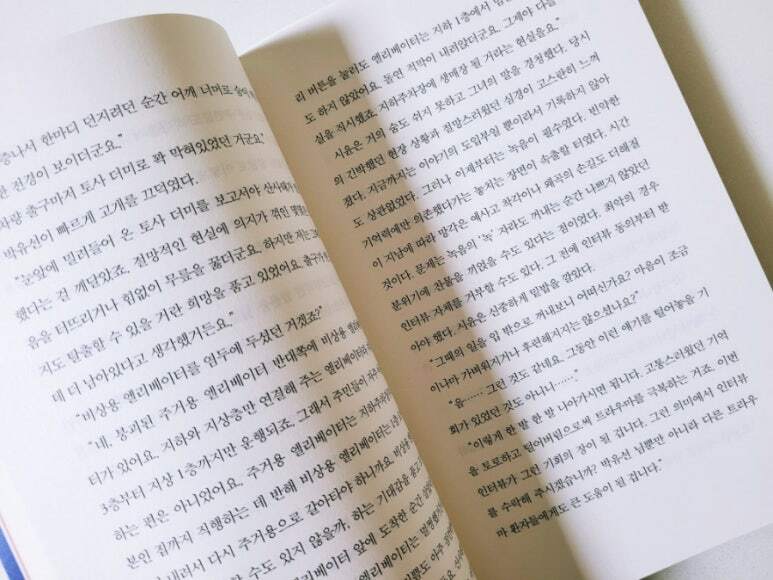 한마디 던지려던 순간 어깨 너머로
한 전경이 보이더군요."
차량 출구마저 토사 더미로 꽉 막혀있었던 거군요?"
박유선이 빠르게 고개를 끄덕였다.
"눈앞에 밀려들어 온 토사 더미를 보고서야 산사태가
했다는 걸 깨달았죠. 절망적인 현실에 의지가 꺾인
음을 터뜨리거나 힘없이 무릎을 꿇더군요. 하지만 저는
지도 탈출할 수 있을 거란 희망을 품고 있었어요.
데 더 남아있다고 생각했거든요."
"비상용 엘리베이터를 염두에 두셨던 거겠죠?"
"네. 붕괴된 주거용 엘리베이터 반대쪽에 비상용
터가 있어요. 지하와 지상층만 연결해 주는 엘리베이터
3층부터 지상 1층까지만 운행되죠. 그래서 주민들이
하는 편은 아니었어요. 주거용 엘리베이터는 지하주차장
본인 집까지 직행하는 데 반해 비상용 엘리베이터는
내려서 다시 주거용으로 갈아타야 하니까요.
수도 있지 않을까, 하는 기대감을 품고
엘리베이터 앞에 도착한 순간
리 버튼을 눌러도 엘리베이터는 지하 1층에서
도 하지 않았어요. 돌연 적막이 내려앉더군요. 그제야 다들
실을 직시했죠. 지하주차장에 생매장 될 거라는 현실을요."
시윤은 저의 숨도 쉬지 못하고 그녀의 말을 경청했다. 당시
의 긴박했던 현장 상황과 절망스러웠던 심경이 고스란히 느껴
졌다. 지금까지는 이야기의 도입부일 뿐이라서 기록하지 않아
도 상관없었다. 그러나 이제부터는 녹음이 필수였다. 빈약한
기억력에만 의존했다가는 놓치는 장면이 속출할 터였다. 시간
이 지남에 따라 망각은 예사고 착각이나 왜곡의 손길도 더해질
것이다. 문제는 녹음의 '녹' 자라도 꺼내는 순간 나쁘지 않았던
분위기에 찬물을 끼얹을 수도 있다는 점이었다. 최악의 경우
인터뷰 자체를 거부할 수도 있다. 그 전에 인터뷰 동의부터 받
아야 했다. 시윤은 신중하게 밑밥을 깔았다.
"그때의 일을 입 밖으로 꺼내보니 어떠신가요? 마음이 조금
이나마 가벼워지거나 후련해지지는 않으셨나요?"
"음…… 그런 것도 같네요. 그동안 이런 얘기를 털어놓을 기
회가 있었던 것도 아니니……."
"이렇게 한 발 한 발 나아가시면 됩니다. 고통스러웠던 기억
을 토로하고 덜어버림으로써 트라우마를 극복하는 거죠. 이번
인터뷰가 그런 기회의 장이 될 겁니다. 그런 의미에서 인터뷰
를 수락해 주시겠습니까? 박유선 님뿐만 아니라 다른 트라우
마 환자들에게도 큰 도움이 될 겁니다."